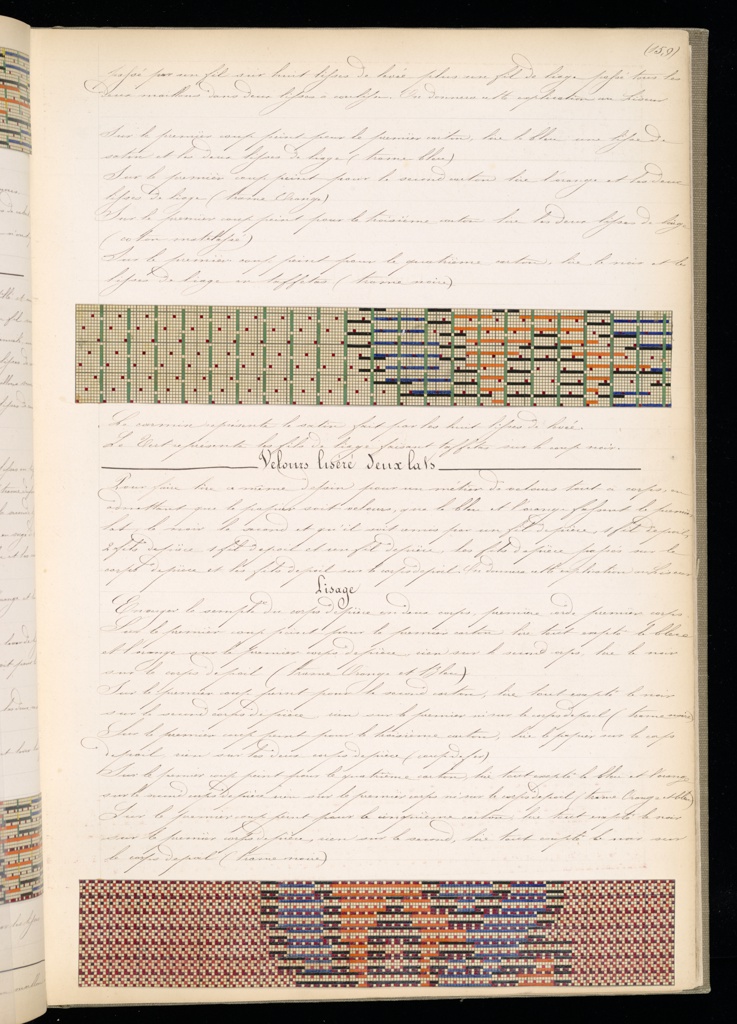 (159)
passé par un fil sur huit lisses de levée plus un fil de liage passé tous les
deux maillons dans deux lisses à On donnera cette explication au Liseur
Sur le premier coup peint pour le premier carton, lire le bleu une lisse de
satin et les deux lisses de liage (trame bleue)
Sur le premier coup peint pour le second carton lire l'orange et les deux
lisses de liage (trame Orange)
Sur le premier coup peint pour le troisième carton lire les deux lisses de liage
Sur le premier coup peint pour le quatrième carton, lire le noir et les
lisses de liage en taffetas (trame noire)
Le carmin représente le satin fait par les huit lisses de levée.
Le Vert représente les fils de liage faisant taffetas sur le coup noir.
Velours liseré deux lats
Pour faire lire ce même dessin pour un métier de velours tout à corps, en
admettant que le papier soit velours, que le bleu et l'orange fassent le premier
lat, le noir le second et qu'il soit armé par un fil de pièce, 1 fil de poil,
2 fils de pièce 1 fil de poil et un fil de pièce, les fils de pièce passés sur le
corps de pièce et les fils de poil sur le corps de poil. On donnera cette explication au Liseur
Lisage
le semple du corps de pièce en deux corps, première corde premier corps.
Sur le premier coup peint pour le premier carton, lire tout excepté le bleu
et l'orange sur le premier corps de pièce, rien sur le second corps, lire le noir
sur le corps de poil (trame Orange et Bleu)
Sur le premier coup peint pour le second carton, lire tout excepté le noir
sur le second corps de pièce rien sur le premier ni sur le corps de poil (trame noire)
Sur le premier coup peint pour le troisième carton, lire le papier sur le corps
de poil rien sur les deux corps de pièce (coup de fer)
Sur le premier coup peint pour le quatrième carton, lire tout excepté le bleu et l'orange
sur le second corps de pièce rien sur le premier corps ni sur le corps de poil (trame Orange et bleu)
Sur le premier coup peint pour le cinquième carton, lire tout excepté le noir
sur le premier corps de pièce, rien sur le second, lire tout excepté le noir sur
le corps de poil (trame noire)